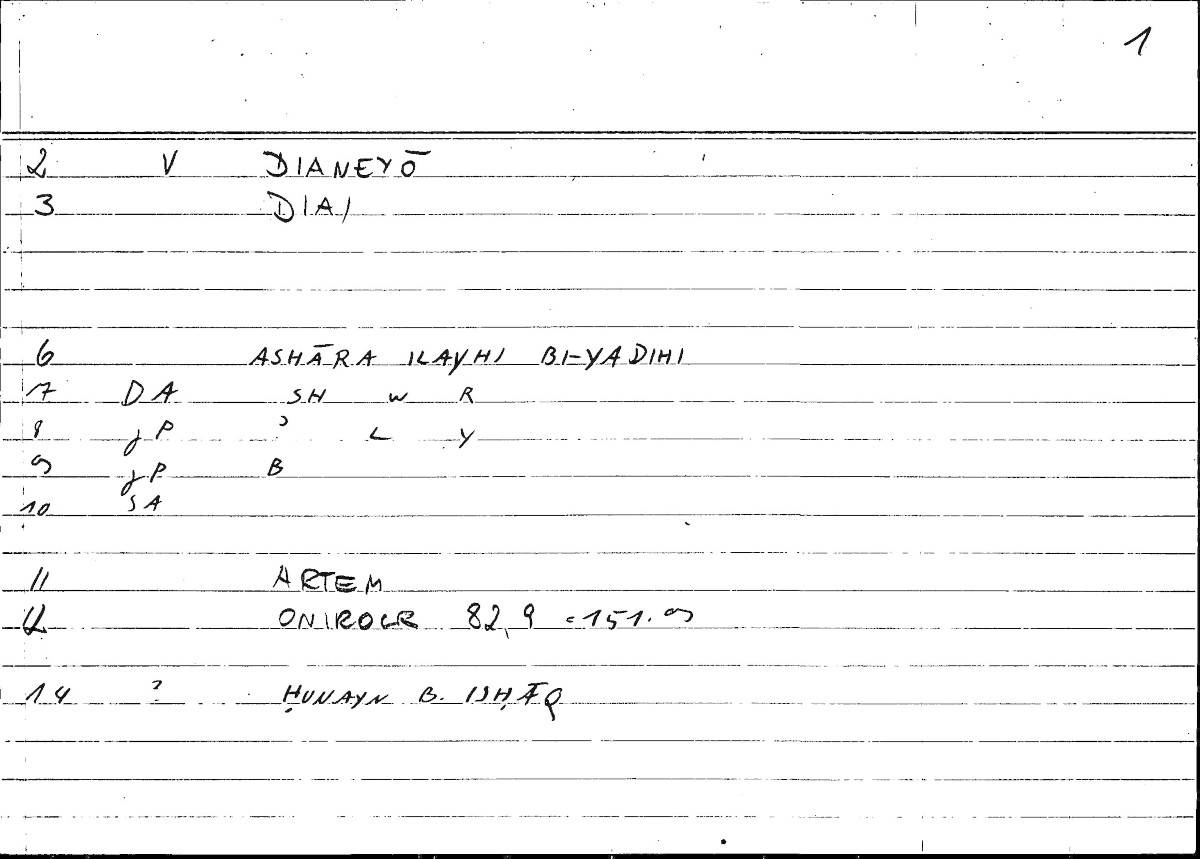 1
2 V DIANEYŌ
3 DIAI
6 ASHĀRA ILAYHI BI-YADIHI
7 DA SH W R
8 JP ʾ L Y
9 JP B
10 SA
11 ARTEM
12 ONIROCR 82,9 =151.9
14 ? ḤUNAYN B. ISḤĀQ